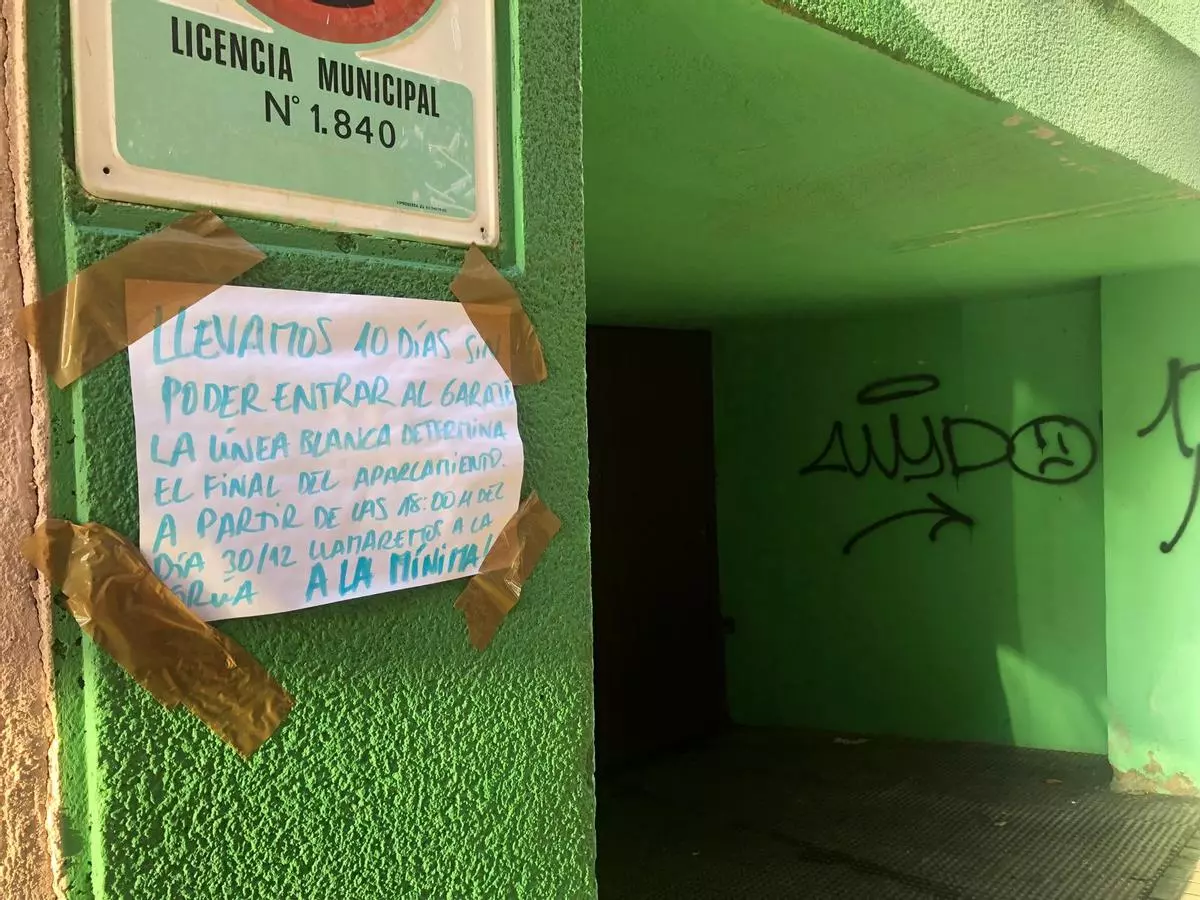 LICENCIA MUNICIPAL
Nº 1.840
LLEVAMOS 10 DÍAS SIN
PODER ENTRAR AL GARAJE
LA LÍNEA BLANCA DETERMINA
EL FINAL DEL APARCAMIENTO.
A PARTIR DE LAS 18:00 H DEL
DÍA 30/12 LLAMAREMOS A LA
GRUA A LA MÍNIMA!